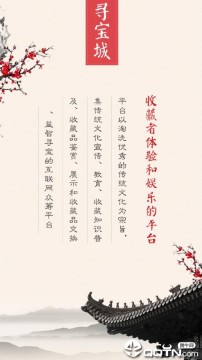 寻宝城
收藏者体验和娱乐的平台
平台以淘洗优秀的传统文化为宗旨，
集传统文化宣传、教育、收藏知识普
及、收藏品鉴赏、展示和收藏品交换
、益智寻宝的互联网众筹平台
QQTN.com